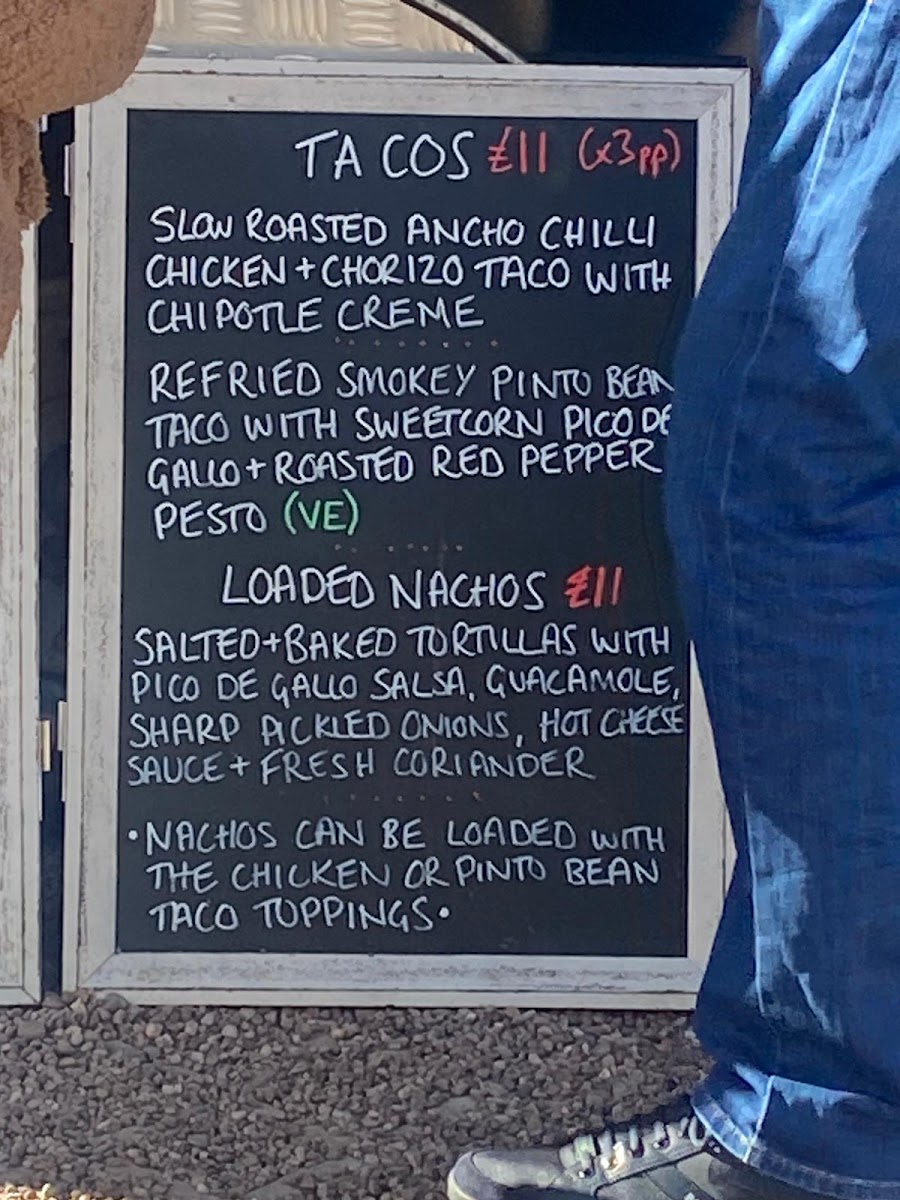 TACOS £11 (x3pp)
SLOW ROASTED ANCHO CHILLI
CHICKEN + CHORIZO TACO WITH
CHIPOTLE CREME
REFRIED SMOKEY PINTO BEAN
TACO WITH SWEETCORN PICO DE
GALLO + ROASTED RED PEPPER
PESTO (VE)
LOADED NACHOS £11
SALTED + BAKED TORTILLAS WITH
PICO DE GALLO SALSA, GUACAMOLE,
SHARP PICKLED ONIONS, HOT CHEESE
SAUCE + FRESH CORIANDER
• NACHOS CAN BE LOADED WITH
THE CHICKEN OR PINTO BEAN
TACO TOPPINGS •